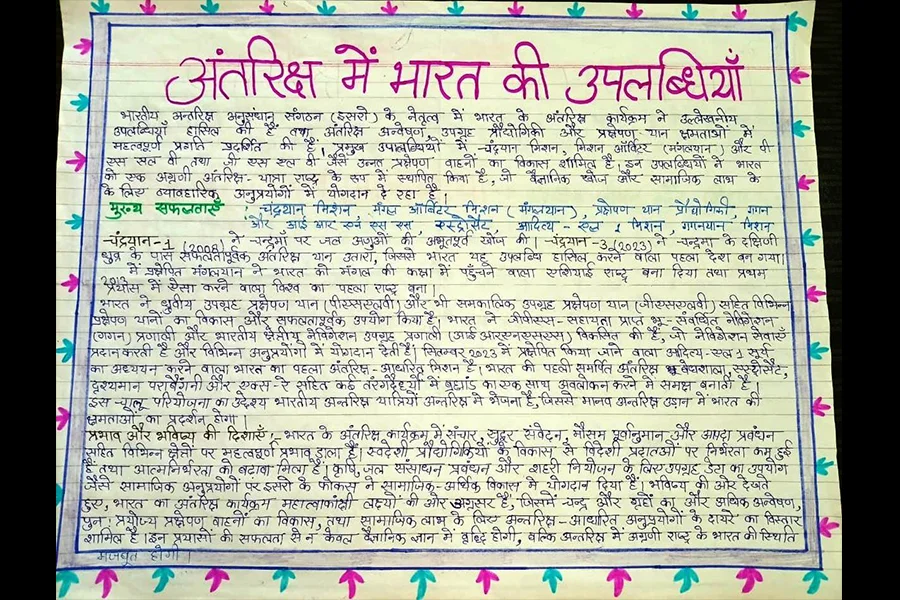 अंतरिक्ष में भारत की उपलब्धियाँ
भारतीय अन्तरिक्ष अनुसंधान संगठन (इसरो) के नेतृत्व में भारत के अंतरिक्ष कार्यक्रम ने उल्लेखनीय
उपलब्धियाँ हासिल की हैं तथा अंतरिक्ष अन्वेषण, उपग्रह प्रौद्योगिकी और प्रक्षेपण यान क्षमताओं में
महत्वपूर्ण प्रगति प्रदर्शित की है। प्रमुख उपलब्धियों में चन्द्रयान मिशन, मिशन ऑर्बिटर (मंगलयान) और पी
एस सल वी तथा जी एस एल वी जैसे उन्नत प्रक्षेपण वाहनों का विकास शामिल है। इन उपलब्धियों ने भारत
को एक अग्रणी अंतरिक्ष-यात्रा राष्ट्र के रूप में स्थापित किया है, जो वैज्ञानिक खोज और सामाजिक लाभ के
के लिए व्यावहारिक अनुप्रयोगों में योगदान दे रहा है।
मुख्य सफलताएँ : चंद्रयान मिशन, मंगल ऑर्बिटर मिशन (मंगलयान), प्रक्षेपण यान प्रौद्योगिकी, गगन
और आई आर एन एस एस, एस्ट्रोसैट आदित्य-एल 1 मिशन, गगनयान मिशन
चंद्रयान-1 (2008) ने चन्द्रमा पर जल अणुओं की अभूतपूर्व खोज की। चंद्रयान-3 (2023) ने चन्द्रमा के दक्षिणी
ध्रुव के पास सफलतापूर्वक अंतरिक्ष यान उतारा, जिससे भारत यह उपलब्धि हासिल करने वाला पहला देश बन गया।
2013 में प्रक्षेपित मंगलयान ने भारत को मंगल की कक्षा में पहुँचने वाला एशियाई राष्ट्र बना दिया तथा प्रथम
प्रयास में ऐसा करने वाला विश्व का पहला राष्ट्र बना।
भारत ने ध्रुवीय उपग्रह प्रक्षेपण यान (पीएसएलवी) और भी समकालिक उपग्रह प्रक्षेपण यान (जीएसएलवी) सहित विभिन्न
प्रक्षेपण यानों का विकास और सफलतापूर्वक उपयोग किया है। भारत ने जीपीएस-सहायता प्राप्त भू-संवर्धित नेविगेशन
(गगन) प्रणाली और भारतीय क्षेत्रीय नेविगेशन उपग्रह प्रणाली (आईआरएनएसएस) विकसित की है, जो नेविगेशन सेवाएँ
प्रदान करती है और विभिन्न अनुप्रयोगों में योगदान देती है। सितम्बर 2023 में प्रक्षेपित किया जाने वाला आदित्य-एल 1 सूर्य
का अध्ययन करने वाला भारत का पहला अंतरिक्ष-आधारित मिशन है। भारत की पहली समर्पित अंतरिक्ष वेधशाला, एस्ट्रोसैट,
दृश्यमान पराबैंगनी और एक्स-रे सहित कई तरंगदैर्ध्यों में ब्रह्मांड का एक साथ अवलोकन करने में समक्ष बनाती है।
इस परियोजना का उद्देश्य भारतीय अन्तरिक्ष यात्रियों अन्तरिक्ष में भेजना है, जिससे मानव अन्तरिक्ष उड़ान में भारत की
क्षमताओं का प्रदर्शन होगा।
प्रभाव और भविष्य की दिशाएँ - भारत के अंतरिक्ष कार्यक्रम में संचार, सुदूर संवेदन, मौसम पूर्वानुमान और आपदा प्रबंधन
सहित विभिन्न क्षेत्रों पर महत्वपूर्ण प्रभाव डाला है। स्वदेशी प्रौद्योगिकियों के विकास से विदेशी प्रदाताओं पर निर्भरता कम हुई
है तथा आत्मनिर्भरता को बढ़ावा मिला है। कृषि, जल संसाधन प्रबंधन और शहरी नियोजन के लिए उपग्रह डेटा का उपयोग
जैसे सामाजिक अनुप्रयोगों पर इसरो के फोकस ने सामाजिक-आर्थिक विकास में योगदान दिया है। भविष्य की ओर देखते
हुए, भारत का अंतरिक्ष कार्यक्रम महात्वाकांक्षी लक्ष्यों की ओर अग्रसर है, जिसमें चन्द्र और ग्रहों का और अधिक अन्वेषण,
पुनः प्रयोज्य प्रक्षेपण वाहनों का विकास, तथा सामाजिक लाभ के लिए अन्तरिक्ष-आधारित अनुप्रयोगों के दायरे का विस्तार
शामिल है। इन प्रयासों की सफलता से न केवल वैज्ञानिक ज्ञान में वृद्धि होगी, बल्कि अन्तरिक्ष में अग्रणी राष्ट्र के भारत की स्थिति
मजबूत होगी।